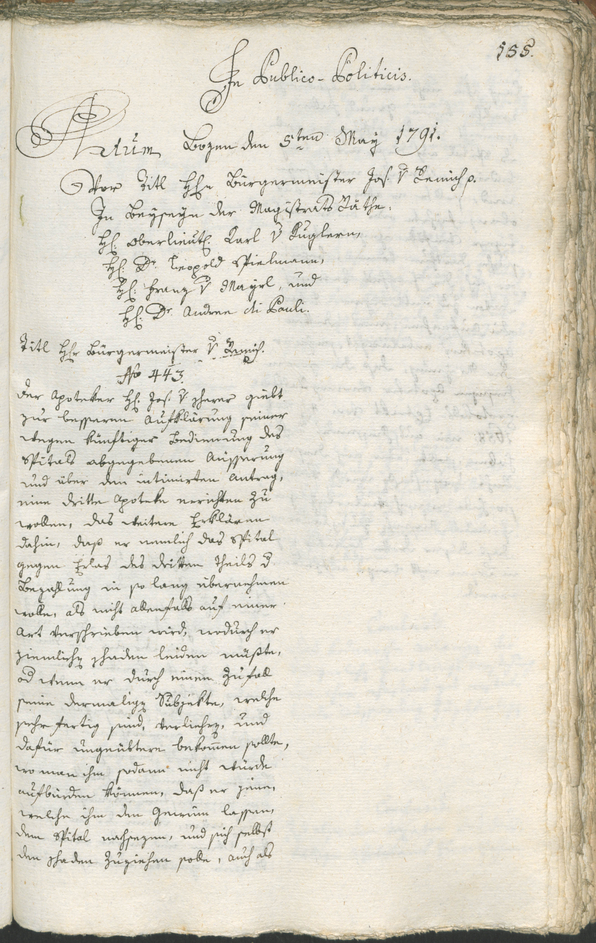 155.
In Publico-Politicis.
Actum Bozen den 5ten May 1791.
Vor Titl Hhr Bürgermeister Jos. v
In Beyseyn der Magistrats Räthe.
Hl. Oberlieut. Carl v Kuglern,
Hl. Dr. Leopold Spielmann,
Hl. Franz v Mayrl, und
Hl. Dr Andree di Pauli.
Titl Hhr Bürgermeister v
No 443.
Der Apoteker Hl. Jos. v giebt
zur besseren Aufklärung seiner
wegen künftiger Bedienung des
Spitals abgegebenen Äusserung
und über den intimirten Antrag,
eine dritte Apoteke errichten zu
wollen, das weitere Erklären
dahin, daß er nemlich das Spital
gegen Erlas des dritten Theils d
Bezahlung in so lang übernehmen
wolle, als nicht allenfalls auf einer
Art verschrieben wird, wodurch er
ziemlichn schaden leiden müßte,
od wenn er durch einen Zufall
seine dermaligen Subjekte, welche
sehr fertig sind, verliehre, und
dafür ungeübtere bekomen sollte,
wo man ihm sodann nicht würde
aufbürden können, daß er jene,
welche ihm den Gewinn lassen,
dem Spital nachsezen, und sich selbst
den schaden zuziehen solle, auch als